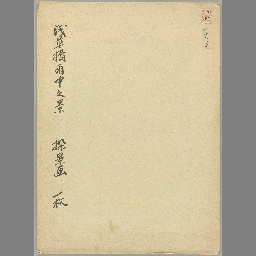 浅草橋雨中之景　探景画　一枚